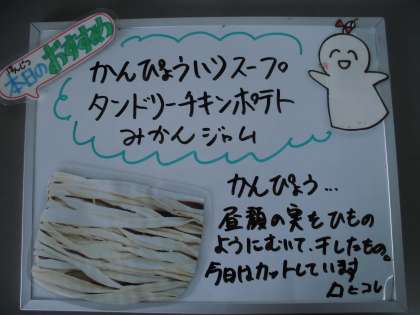 本日のおすすめ
かんぴょう入りスープ
タンドリーチキンポテト
みかんジャム
かんぴょう…
昼顔の実をひもの
ようにむいて、干したもの。
今日はカットしています